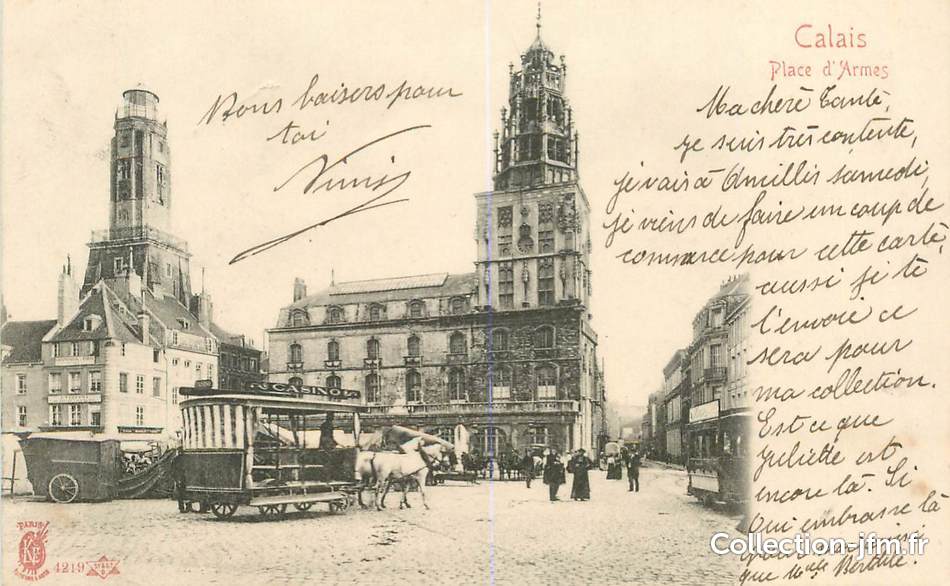 Calais
Place d'Armes
Bons baisers pour
toi
Ninis
Ma chère Tante,
je suis très contente,
je vais à Amillis samedi,
je viens de faire un coup de
commerce pour cette carte
aussi je te
l'envoie ce
sera pour
ma collection.
Est ce que
Juliette est
encore là. Si
Oui embrasse la
pour moi ainsi
que Melle Berthe.
CASINO
PARIS
KF
4219
Collection-jfm.fr